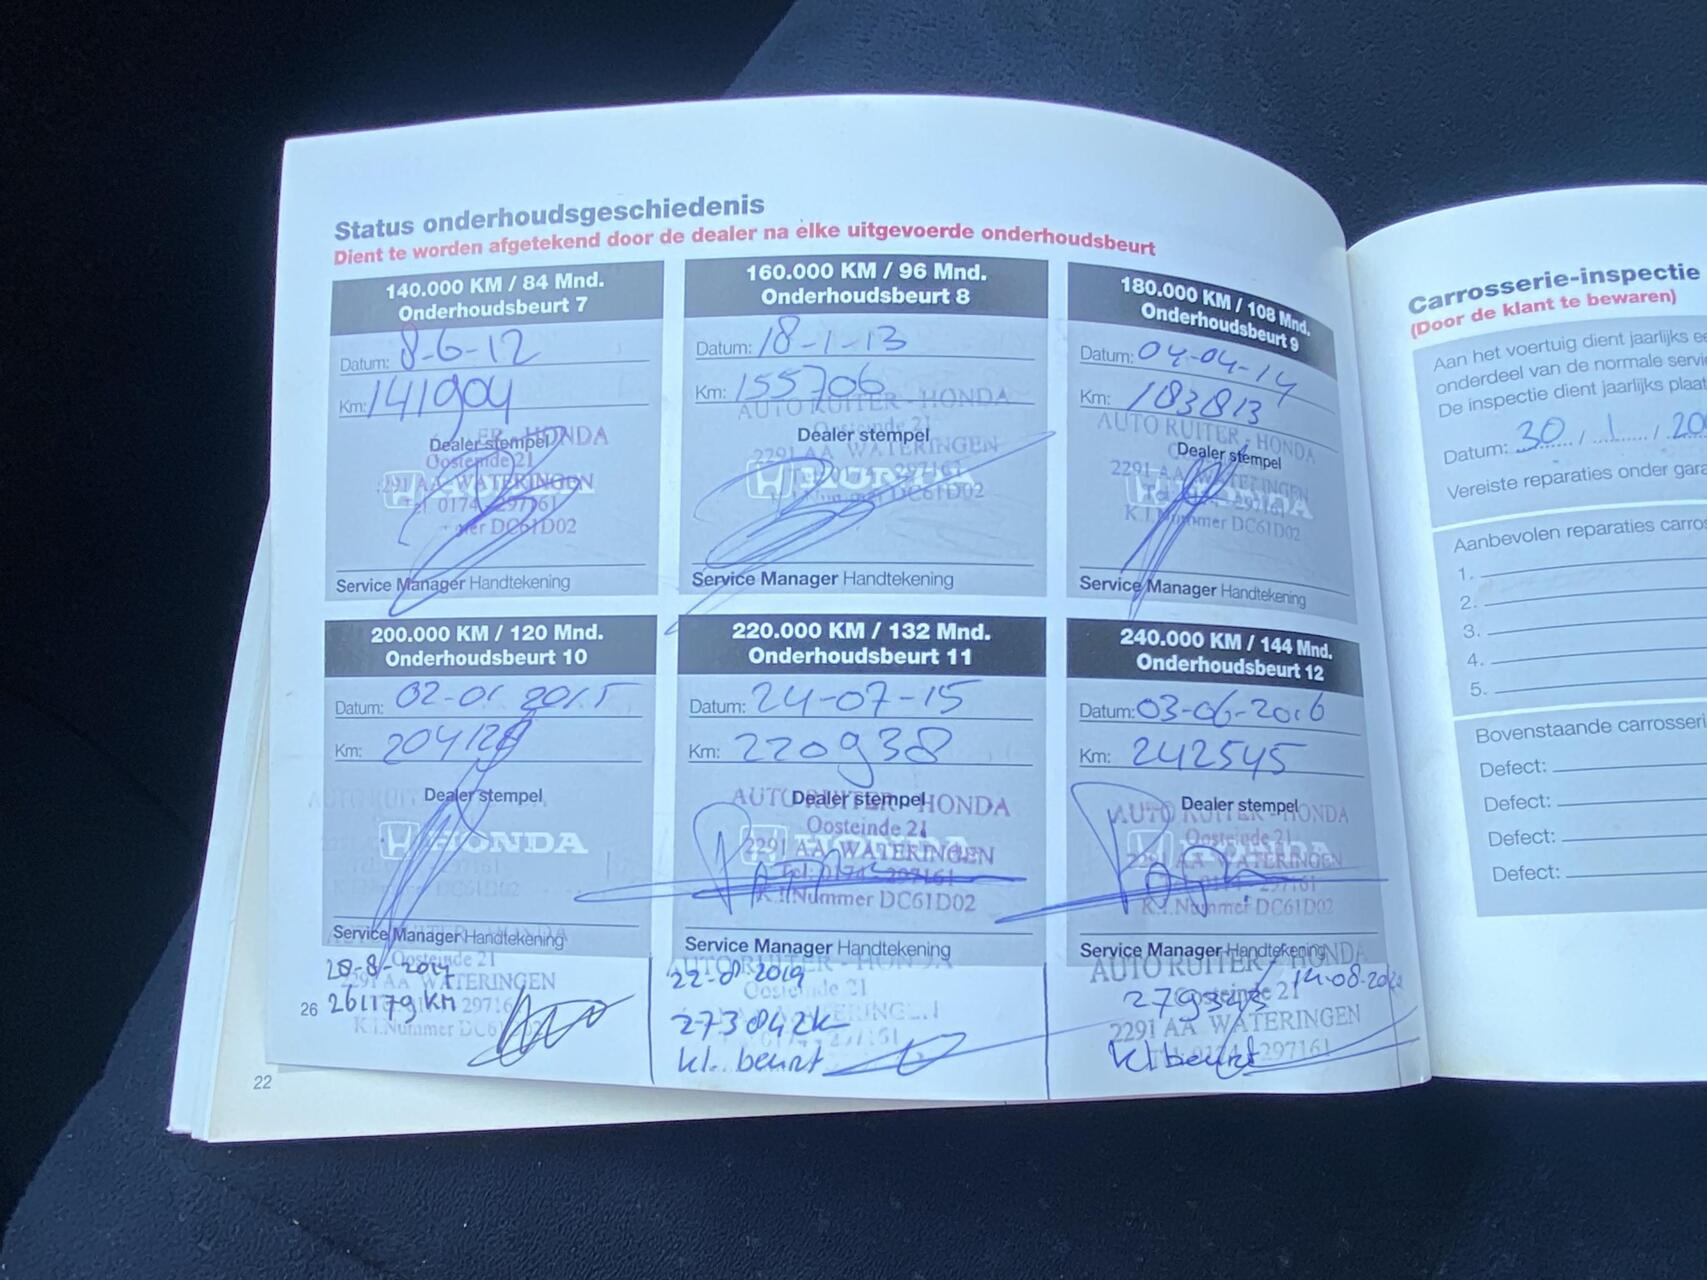 Status onderhoudsgeschiedenis
Dient te worden afgetekend door de dealer na elke uitgevoerde onderhoudsbeurt
140.000 KM / 84 Mnd.
Onderhoudsbeurt 7
Datum: 8-6-12
Km: 141904
Dealer stempel
ER - HONDA
Oosteinde 21
2291 AA WATERINGEN
Tel. 0174 - 297161
mer DC61D02
HONDA
Service Manager Handtekening
160.000 KM / 96 Mnd.
Onderhoudsbeurt 8
Datum: 18-1-13
Km: 155706
AUTO RUITER - HONDA
Oosteinde 21
Dealer stempel
2291 AA WATERINGEN
297161
HONDA
Nummer DC61D02
Service Manager Handtekening
180.000 KM / 108 Mnd.
Onderhoudsbeurt 9
Datum: 04-04-14
Km: 183813
AUTO RUITER - HONDA
Dealer stempel
2291 AA WATERINGEN
Tel. 297161
HONDA
K.I.Nummer DC61D02
Service Manager Handtekening
200.000 KM / 120 Mnd.
Onderhoudsbeurt 10
Datum: 02-01 2015
Km: 204128
AUTO RUIT
Dealer stempel
HONDA
DC61D02
Service Manager Handtekening
220.000 KM / 132 Mnd.
Onderhoudsbeurt 11
Datum: 24-07-15
Km: 220938
AUTO RUITER - HONDA
Dealer stempel
Oosteinde 21
2291 AA WATERINGEN
Tel. 0174 - 297161
K.I.Nummer DC61D02
Service Manager Handtekening
240.000 KM / 144 Mnd.
Onderhoudsbeurt 12
Datum: 03-06-2016
Km: 242545
Dealer stempel
AUTO RUITER - HONDA
Oosteinde 21
2291 AA WATERINGEN
0174 - 297161
K.I.Nummer DC61D02
Service Manager Handtekening
28-8-2017
Oosteinde 21
2291 AA WATERINGEN
261179 KM
K.I.Nummer DC6
26
22-8-2019
AUTO RUITER - HONDA
Oosteinde 21
273842k
kl. beurt
AUTO RUITER - HONDA
14-08-202
Oosteinde 21
2291 AA WATERINGEN
297161
kl beurt
22
Carrosserie-inspectie
(Door de klant te bewaren)
Aan het voertuig dient jaarlijks ee
onderdeel van de normale servi
De inspectie dient jaarlijks plaat
Datum: 30 / 1 / 20
Vereiste reparaties onder gara
Aanbevolen reparaties carros
1.
2.
3.
4.
5.
Bovenstaande carrosseri
Defect:
Defect:
Defect:
Defect: